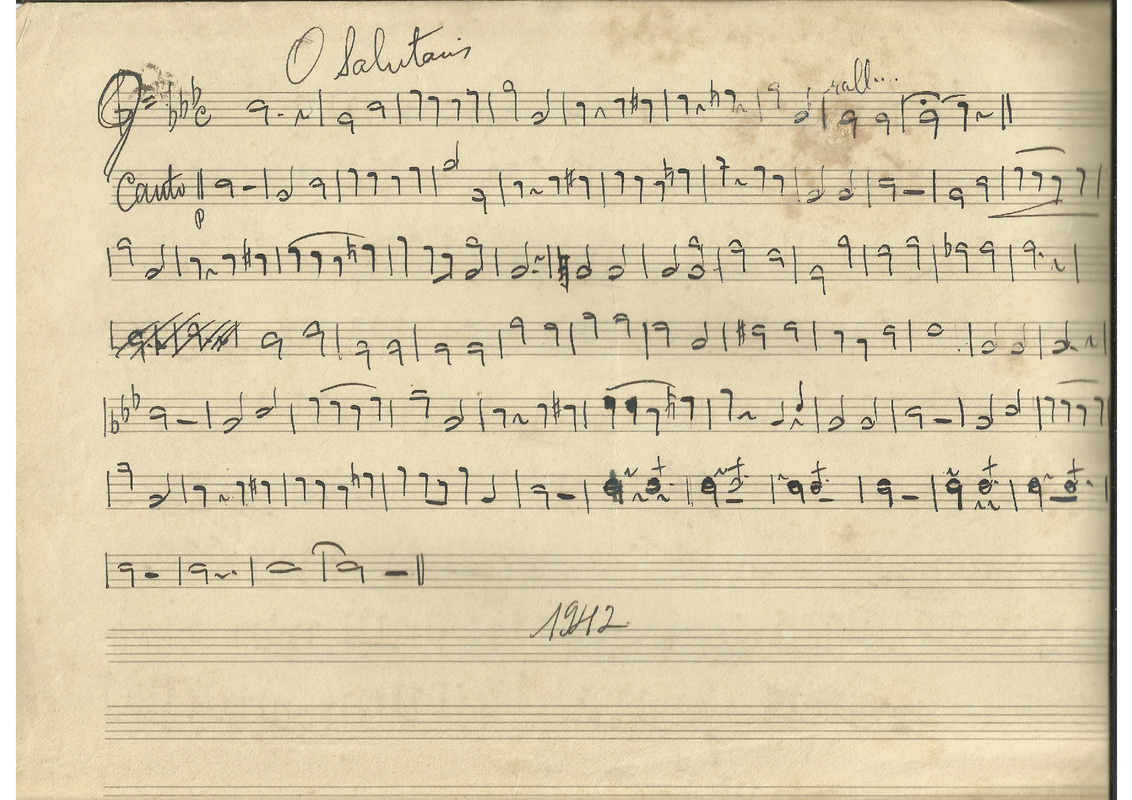 O Salutaris
rall....
Canto
p
1942